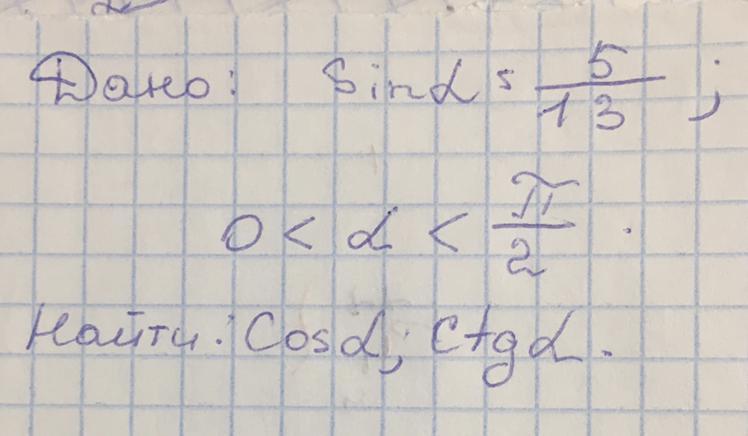 Дано: Sinα = 5/13 ;
0 < α < π/2 .
Найти: Cosα; Ctgα.